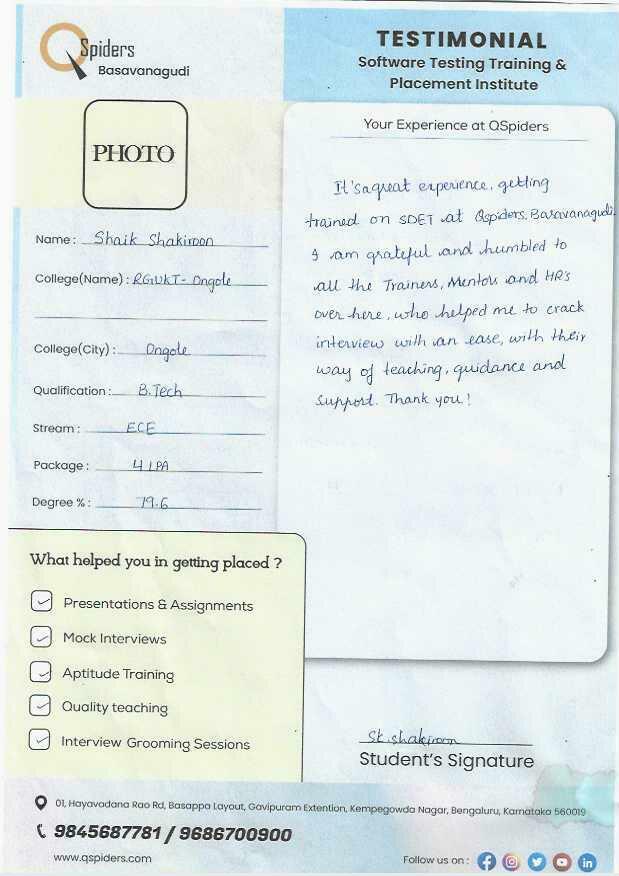 QSpiders
Basavanagudi
TESTIMONIAL
Software Testing Training &
Placement Institute
PHOTO
Name : Shaik Shakiroon
College(Name) : RGUKT- Ongole
College(City) : Ongole
Qualification : B.Tech
Stream : ECE
Package : 4 LPA
Degree % : 79.6
Your Experience at QSpiders
It's a great experience, getting
trained on SDET at Qspiders, Basavanagudi.
I am grateful and humbled to
all the Trainers, Mentors and HR's
over here, who helped me to crack
interview with an ease, with their
way of teaching, guidance and
support. Thank you!
What helped you in getting placed ?
Presentations & Assignments
Mock Interviews
Aptitude Training
Quality teaching
Interview Grooming Sessions
Sk. shakiroon
Student's Signature
01, Hayavadana Rao Rd, Basappa Layout, Gavipuram Extention, Kempegowda Nagar, Bengaluru, Karnataka 560019
9845687781 / 9686700900
www.qspiders.com
Follow us on :